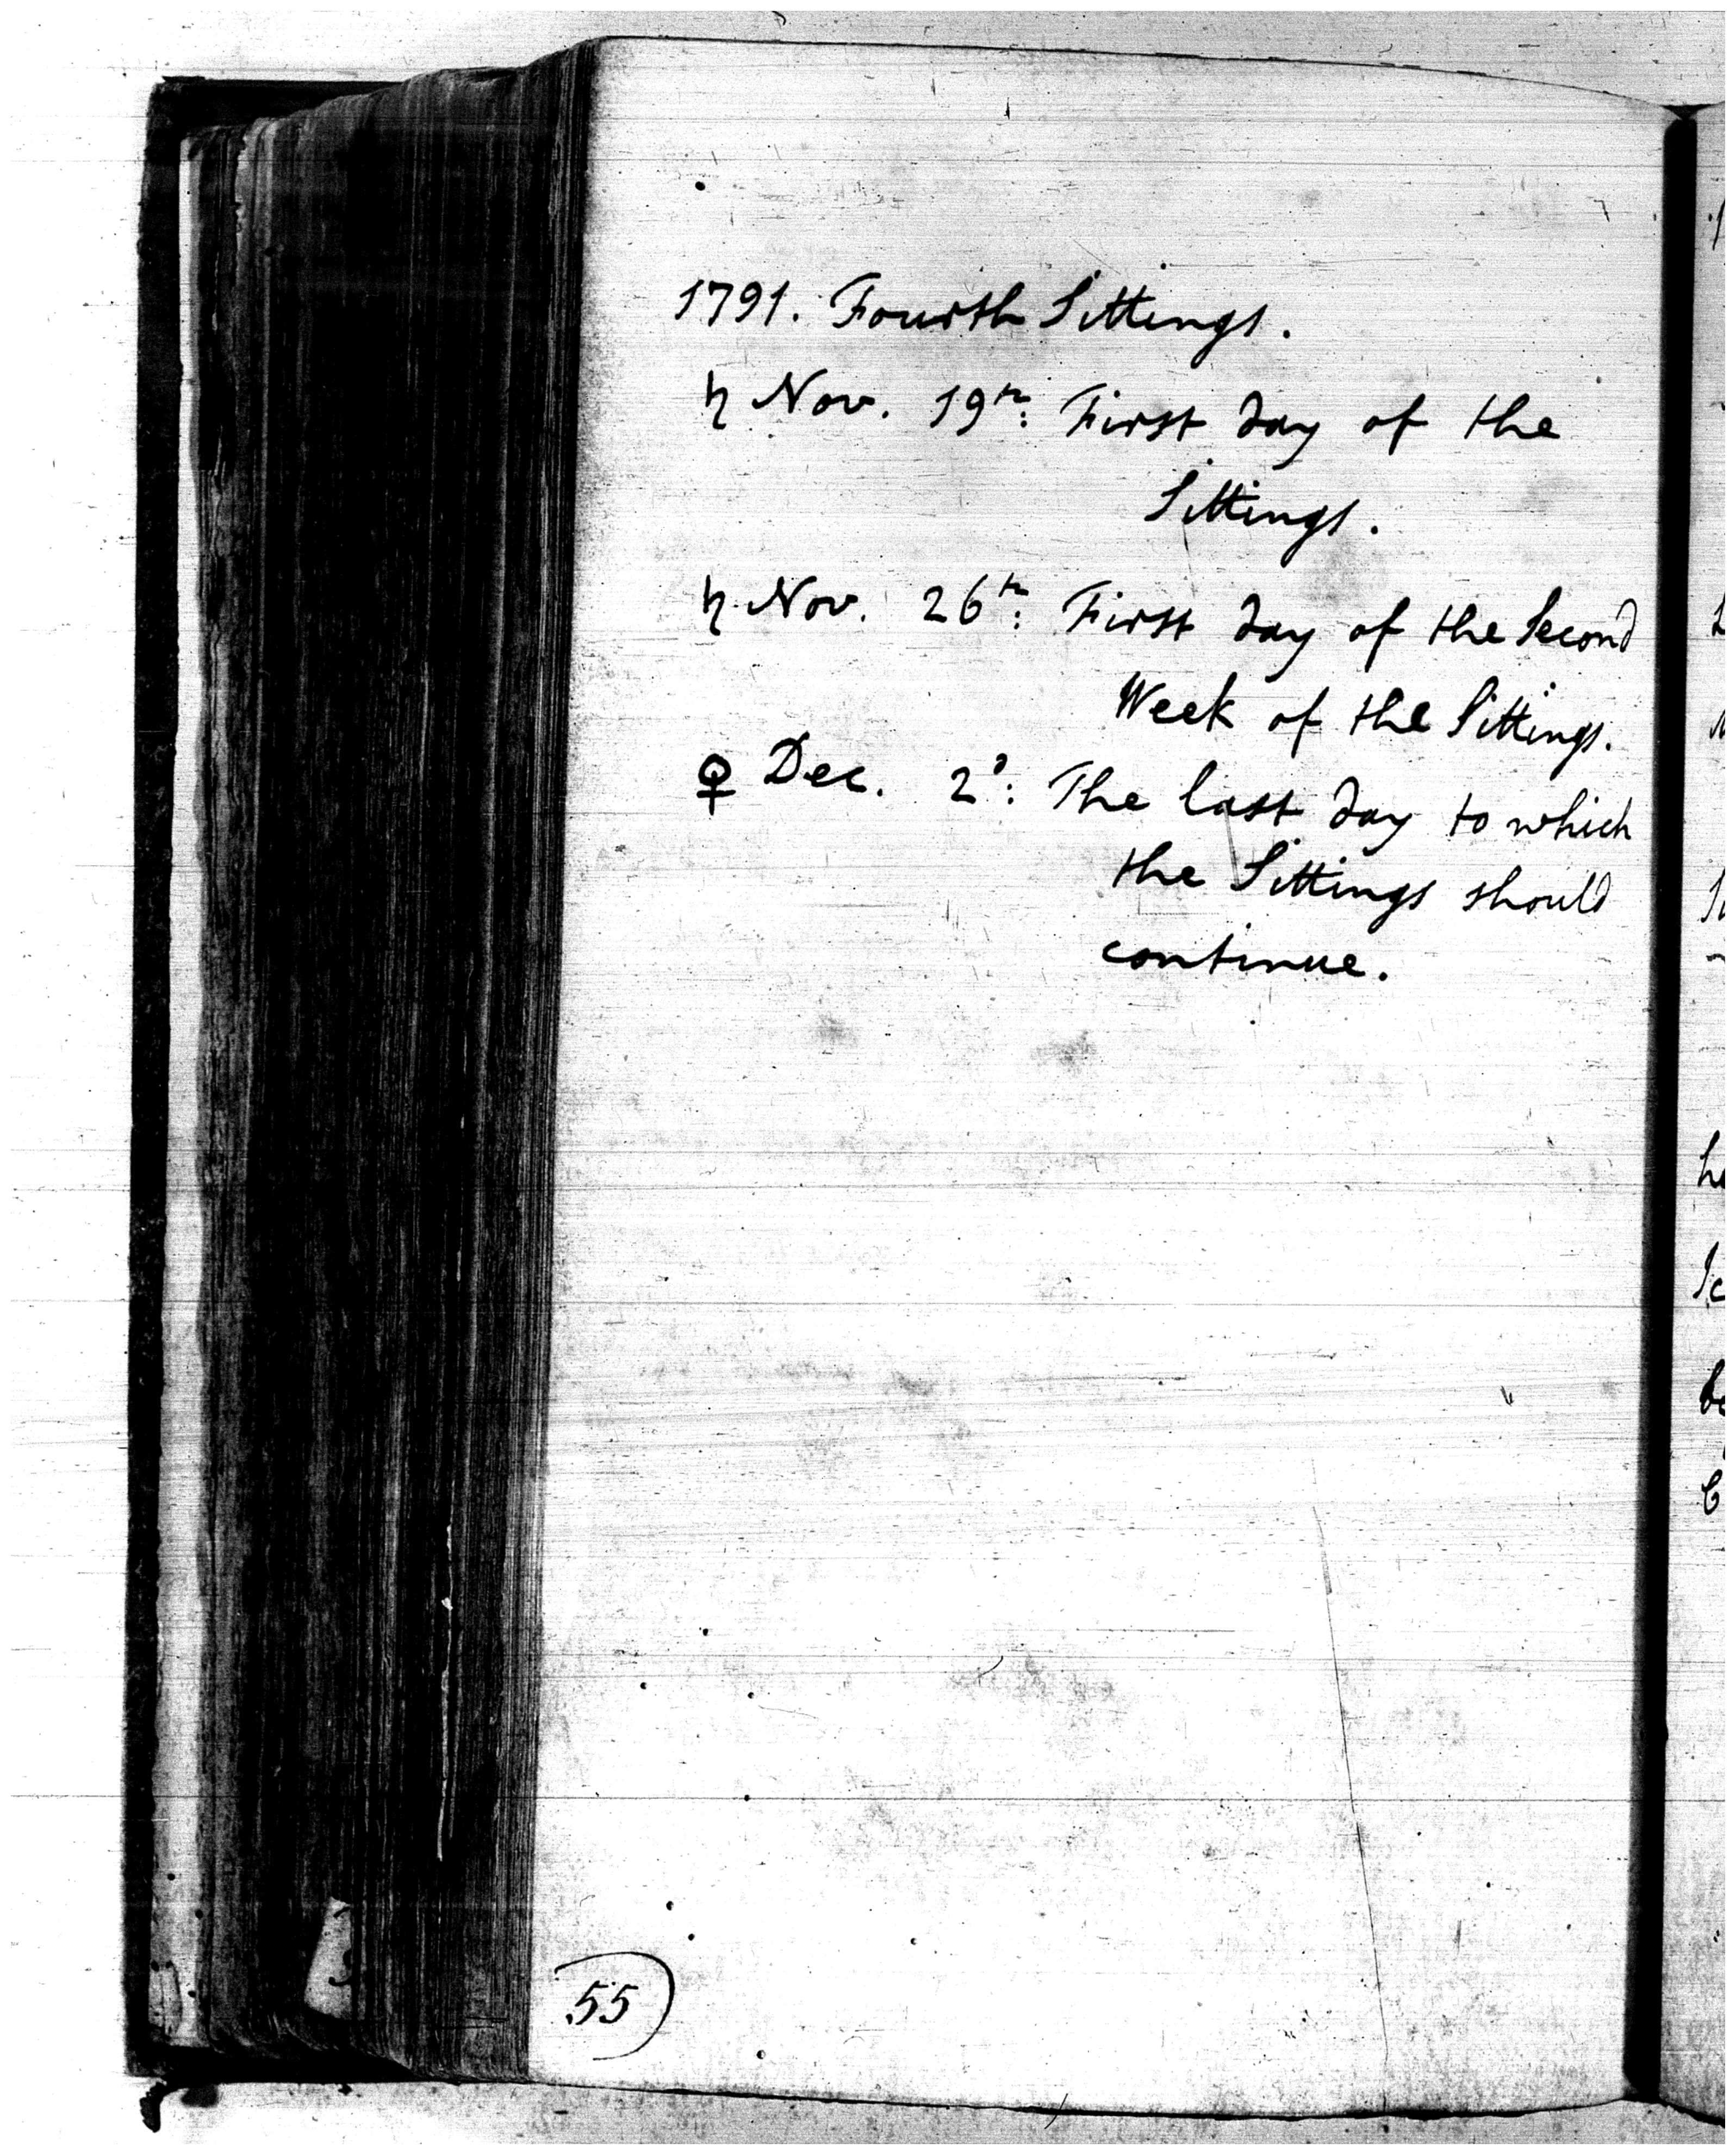 1791. Fourth Sittings.
♄ Nov. 19th: First day of the
Sittings.
♄ Nov. 26th: First day of the Second
Week of the Sittings.
♀ Dec. 2d: The last day to which
the Sittings should
continue.
55